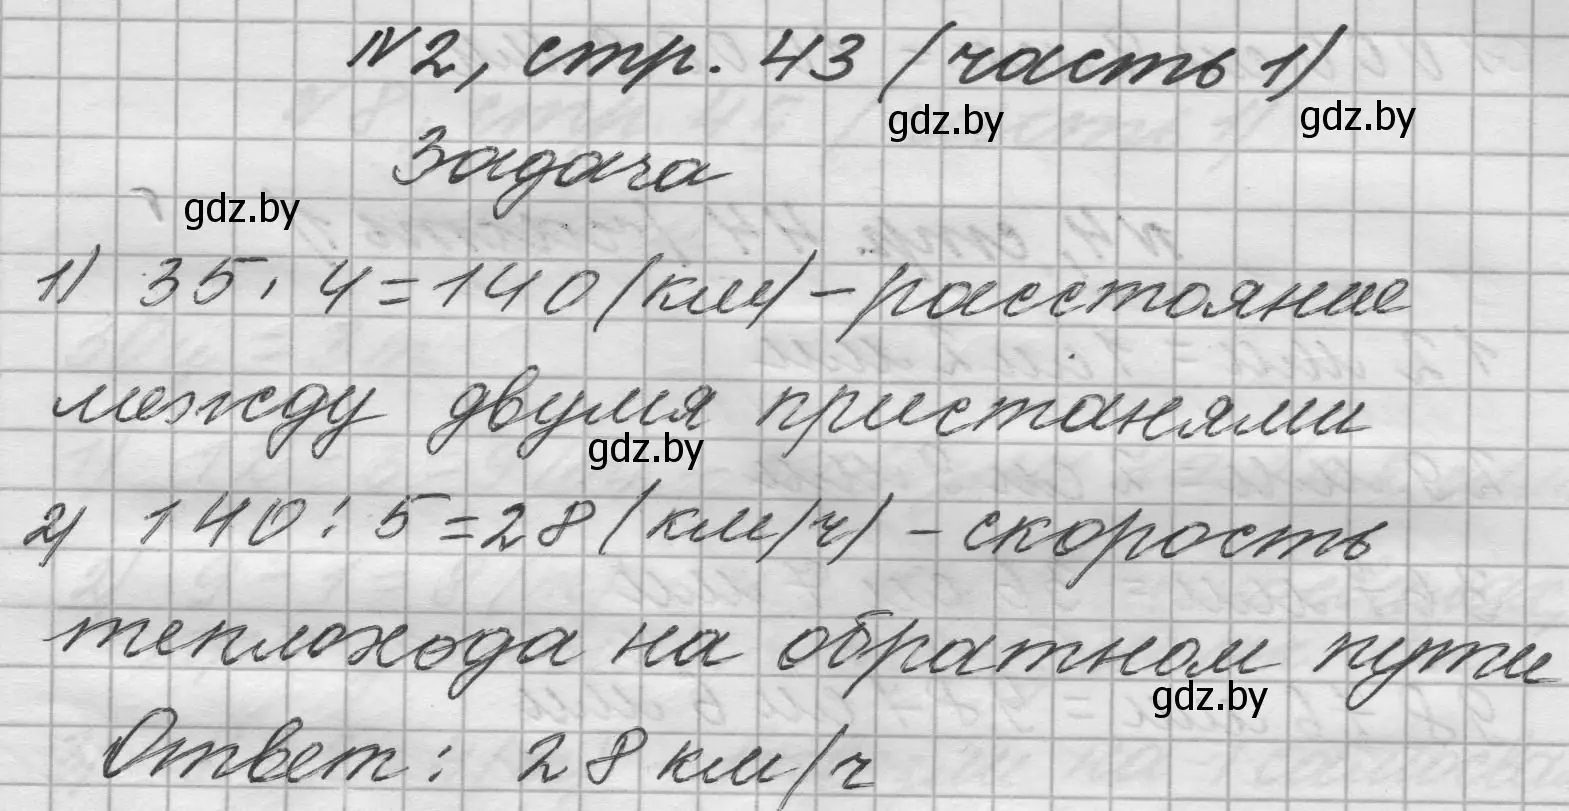 №2, стр. 43 (часть 1)
gdz.by
gdz.by
Задача
gdz.by
1) 35 · 4 = 140 (км) – расстояние
между двумя пристанями
gdz.by
2) 140 : 5 = 28 (км/ч) – скорость
теплохода на обратном пути
gdz.by
Ответ: 28 км/ч